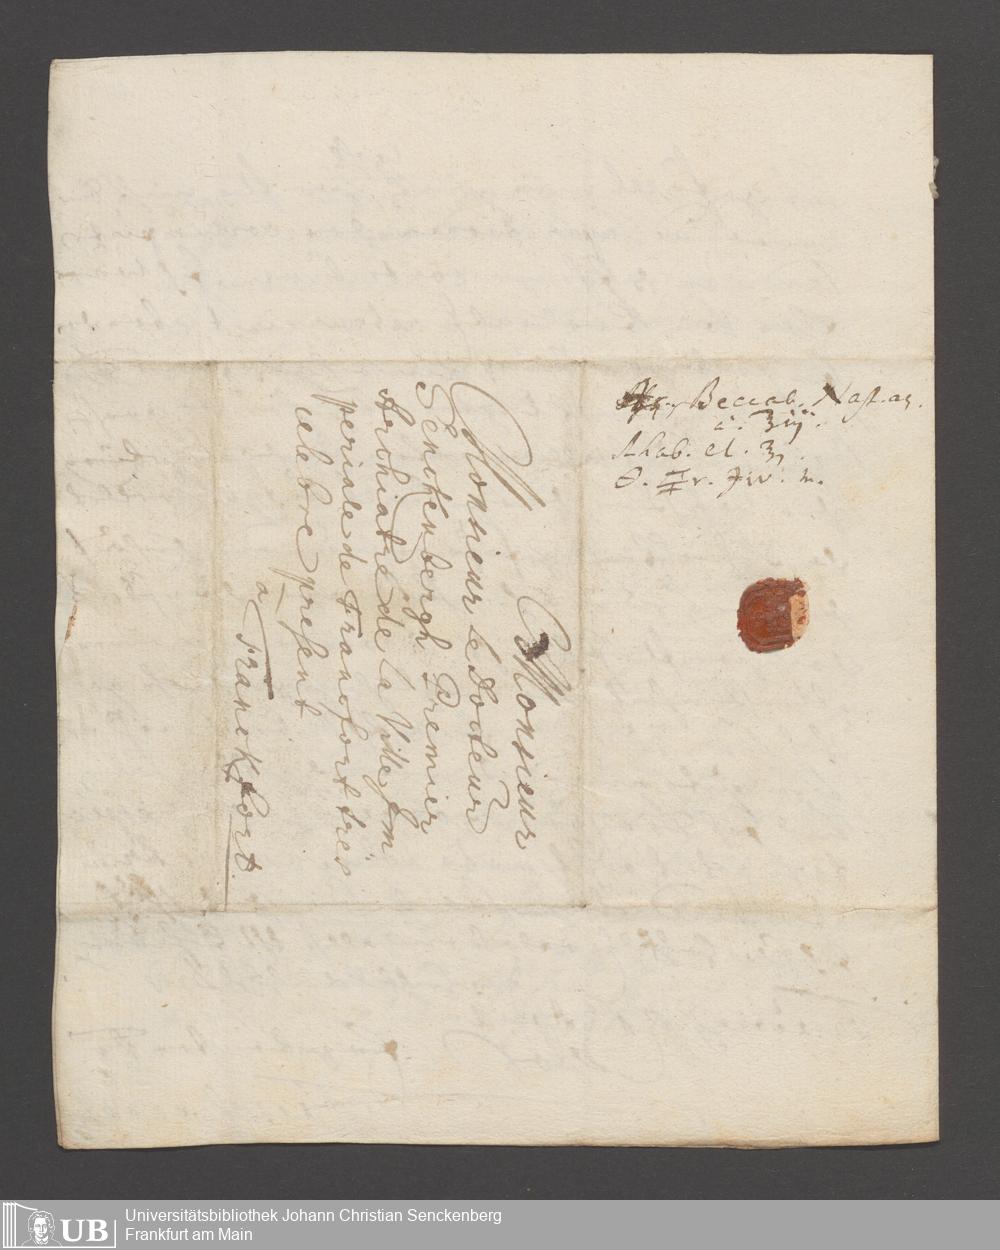 Monsieur
Monsieur le Docteur
Senckenbergh Premier
Archiatre de la Ville Im
periale de francfort trés
celebre present
a
Franckfort.
Beccab. Nast. aq.
a. ʒiij.
Rhab. el. ʒj.
Universitätsbibliothek Johann Christian Senckenberg
Frankfurt am Main
UB